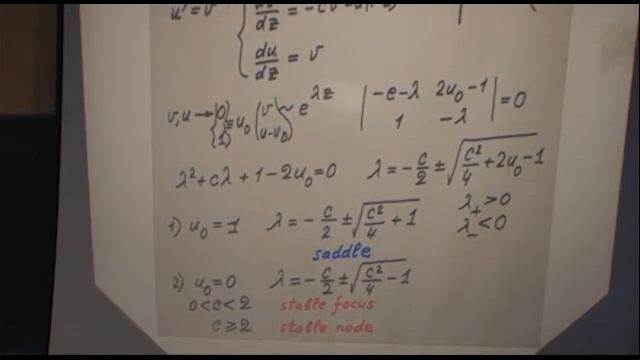 u' = v { dv/dz = -cv -u(1-u)
du/dz = v
v, u → {0) 1)} = u₀ (v u-u₀) ~ e^λz | -c-λ 2u₀-1 1 -λ | = 0
λ² + cλ + 1 - 2u₀ = 0 λ = -c/2 ± √(c²/4 + 2u₀ - 1)
1) u₀ = 1 λ = -c/2 ± √(c²/4 + 1) λ₊ > 0 λ₋ < 0
saddle
2) u₀ = 0 λ = -c/2 ± √(c²/4 - 1)
0 < c < 2 stable focus
c ≥ 2 stable node